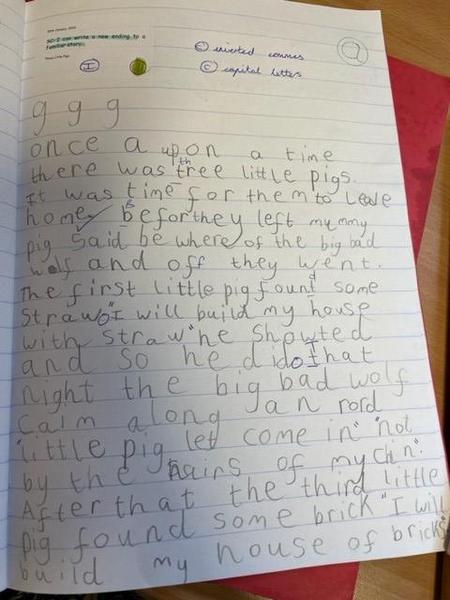 SC: I can write a new ending to a
familiar story.
I
inverted commas
C capital letters
@
g g g
once a upon a time
there was th tree little pigs.
It was time for them to leave
home, Beforthey left mummy
pig said be where of the big bad
wolf and off they went.
The first little pig found some
straw "I will build my house
with straw" he showted
and so he did. That
night the big bad wolf
calm along an rord
"little pig let come in" "not
by the hairs of my chin".
After that the third little
pig found some brick "I will
build my house of bricks"